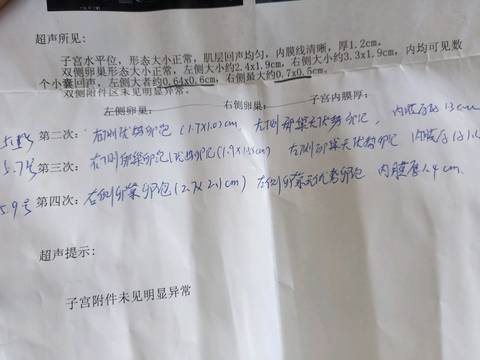 超声所见:
子宫水平位，形态大小正常，肌层回声均匀，内膜线清晰，厚1.2cm。
双侧卵巢形态大小正常，左侧大小约2.4x1.9cm，右侧大小约3.3x1.9cm，内均可见数
个小囊回声，左侧大者约0.64x0.6cm，右侧最大约0.7x0.5cm。
双侧附件区未见明显异常。
左侧卵巢: 右侧卵巢: 子宫内膜厚:
第二次: 右侧优势卵泡(1.7x1.0)cm, 左侧卵巢无优势卵泡, 内膜厚
5.7号 第三次: 右侧卵巢 优势卵泡 左侧卵巢无优势卵泡 内膜厚
5.9号 第四次: 右侧卵巢卵泡(2.7x2.1cm) 左侧卵巢无优势卵泡 内膜厚1.4cm.
超声提示:
子宫附件未见明显异常